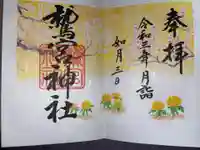 奉拝
令和三年月詣
如月三日
鷲宮神社